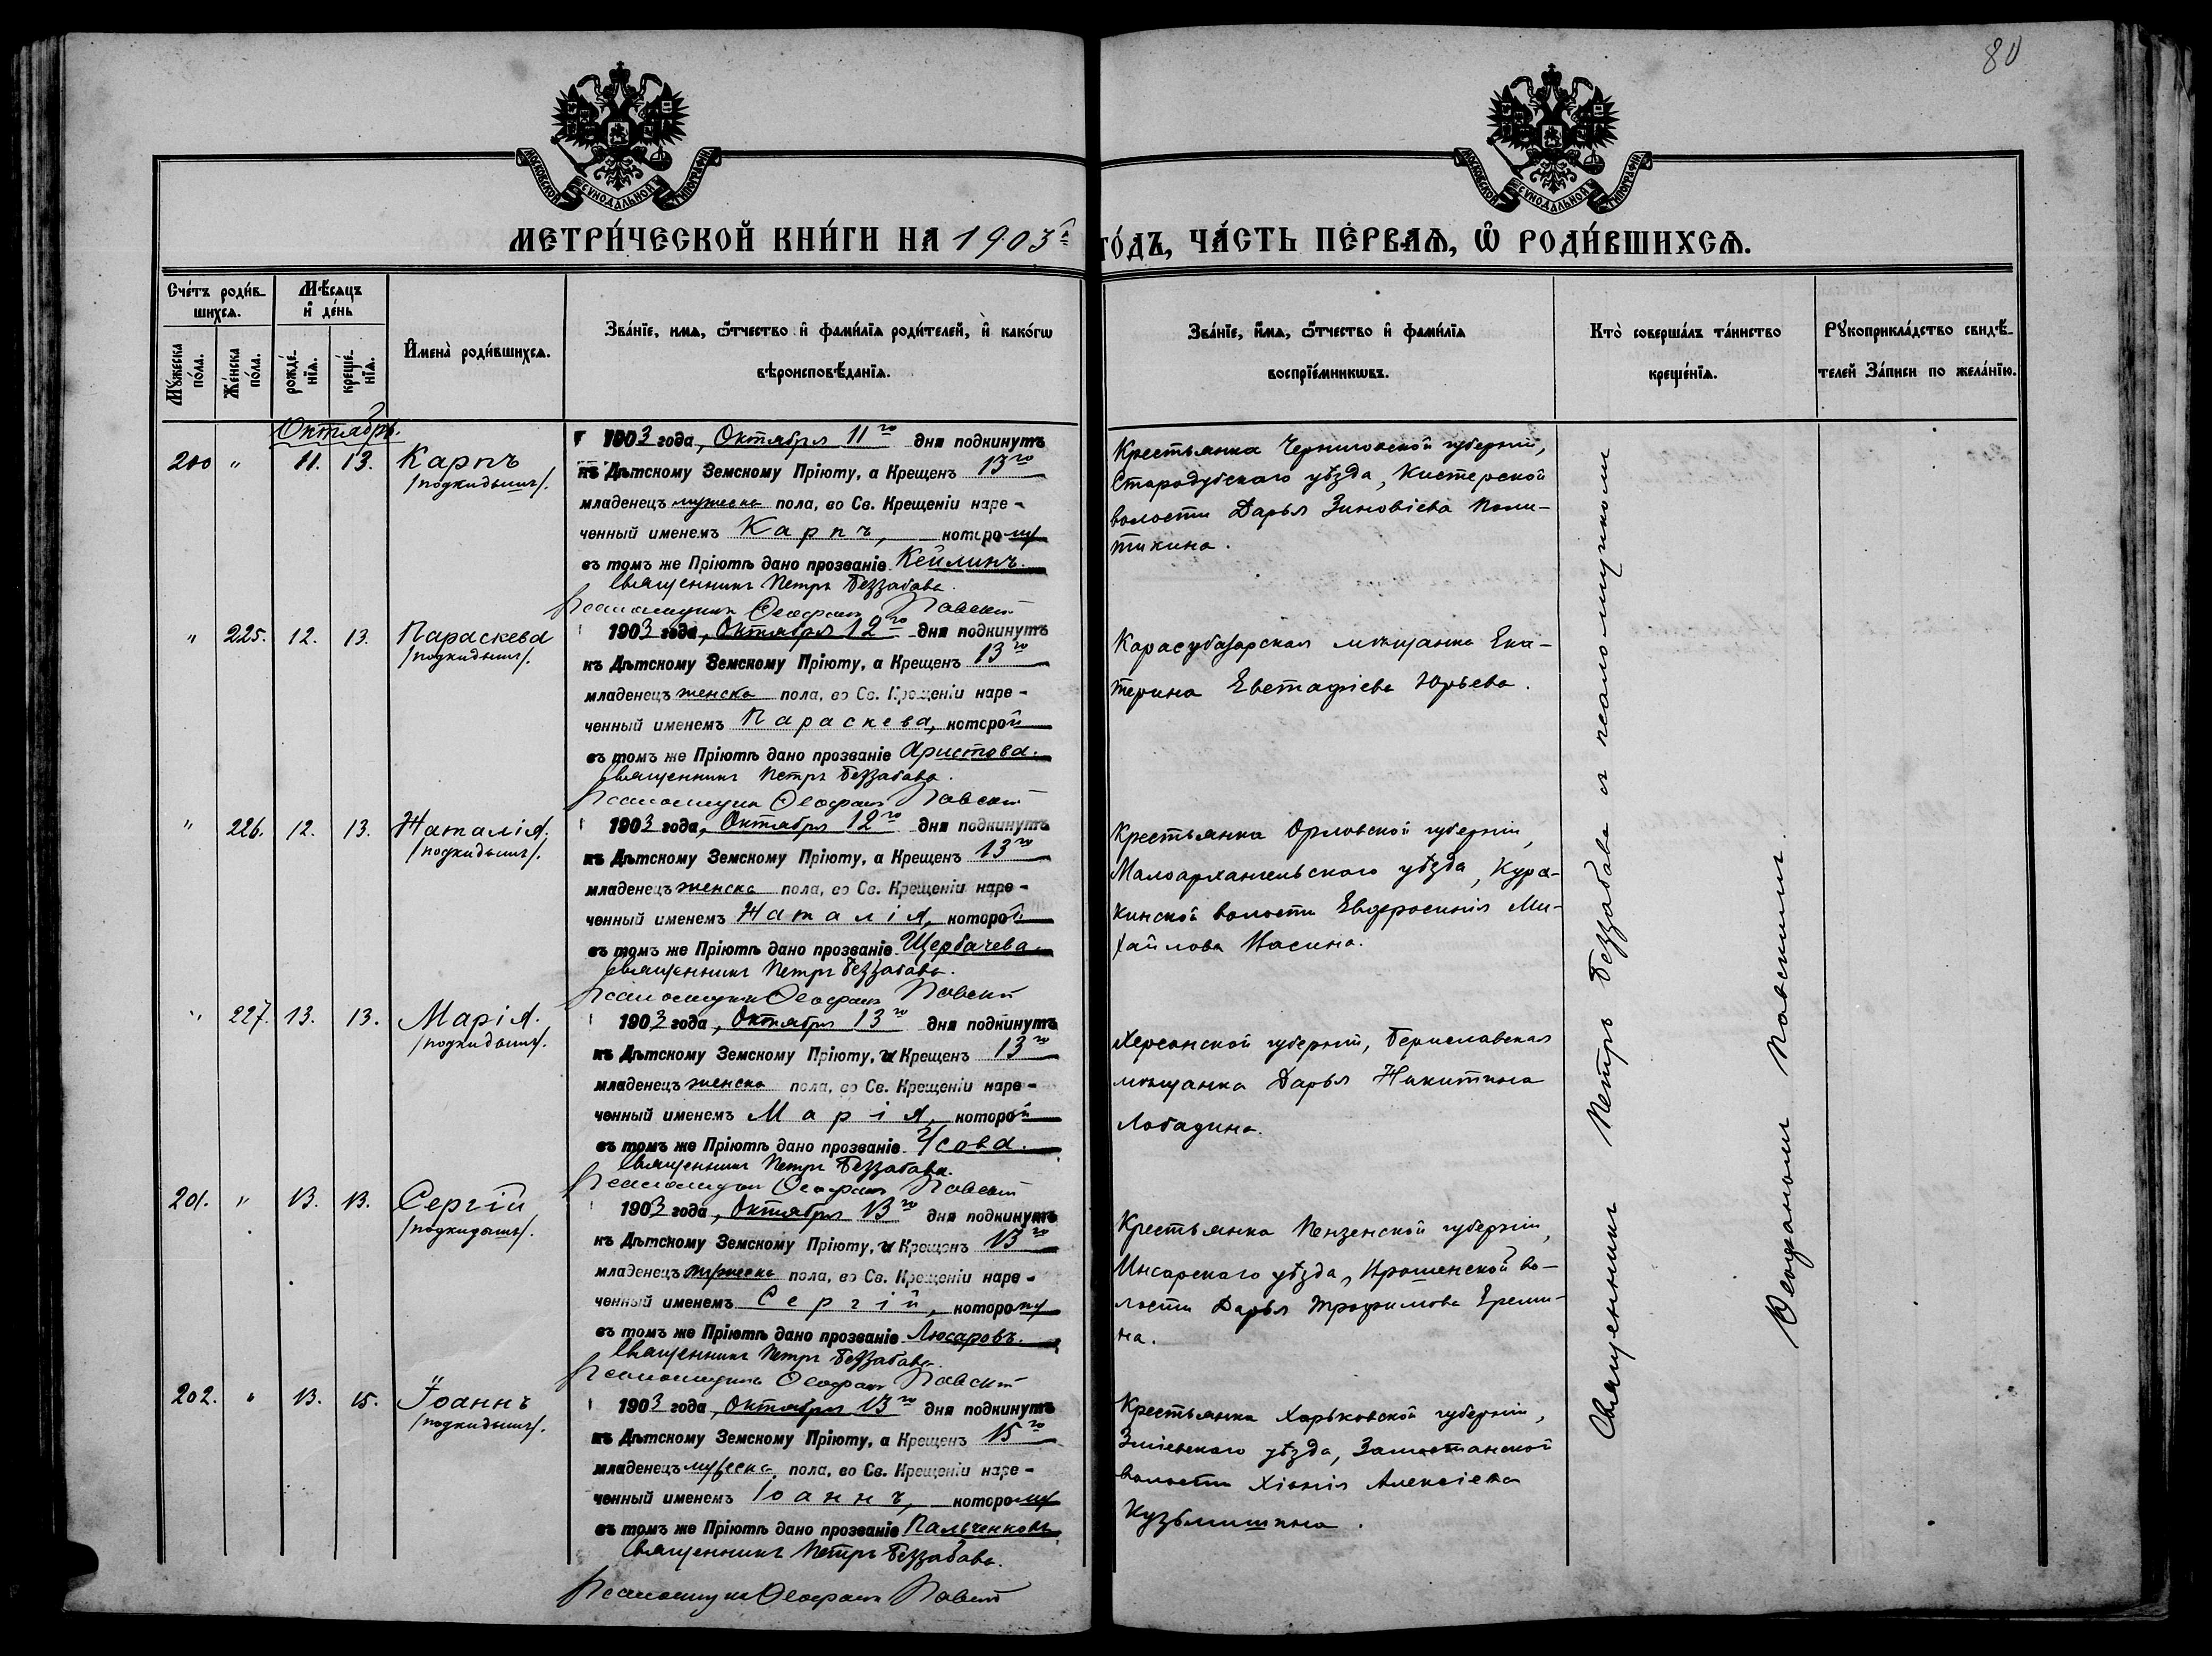 80
МОСКОВСКОЙ СУНОДАЛЬНОЙ ТИПОГРАФІИ
МОСКОВСКОЙ СУНОДАЛЬНОЙ ТИПОГРАФІИ
МЕТРИ́ЧЕСКОЙ КНИ́ГИ НА 1903й
ГО́ДЪ, ЧА́СТЬ ПЕ́РВАѦ, Ѡ РОДИ́ВШИХСѦ.
Сче́тъ роди́в-
шихсѧ.
Мѣ́сѧцъ
и҆ де́нь
Мꙋ́жеска по́ла.
Же́нска по́ла.
рожде́-нїѧ.
креще́-нїѧ.
И҆мена̀ роди́вшихсѧ.
Зва́нїе, имѧ, ѻ҆́тчество и҆ фами́лїѧ роди́телей, и҆ како́гѡ
вѣроисповѣ́данїѧ.
Зва́нїе, и҆́мѧ, ѻ҆́тчество и҆ фами́лїѧ
воспрїе́мникѡвъ.
Кто̀ соверша́лъ та́инство
креще́нїѧ.
Рꙋкоприкла́дство свидѣ́-
телей За́писи по жела́нїю.
Октябрь.
200 " 11. 13. Карпъ
/подкидышъ/.
1903 года, Октября 11го дня подкинутъ
къ Дѣтскому Земскому Пріюту, а Крещенъ 13го
младенецъ мужеска пола, во Св. Крещеніи наре-
ченный именемъ Карпъ, которому
въ томъ же Пріютѣ дано прозваніе Кейлинъ.
Священникъ Петръ Беззабава.
Псаломщикъ Ѳеофанъ Павскій
Крестьянка Черниговской губерніи,
Стародубскаго уѣзда, Кистерской
волости Дарья Зиновіева Поли-
тикина.
" 225. 12. 13. Параскева
/подкидышъ/.
1903 года, Октября 12го дня подкинутъ
къ Дѣтскому Земскому Пріюту, а Крещенъ 13го
младенецъ женска пола, во Св. Крещеніи наре-
ченный именемъ Параскева, которой
въ томъ же Пріютѣ дано прозваніе Аристова.
Священникъ Петръ Беззабава.
Псаломщикъ Ѳеофанъ Павскій
Карасубазарская мѣщанка Ека-
терина Евстафіева Юрьева.
" 226. 12. 13. Наталія.
/подкидышъ/.
1903 года, Октября 12го дня подкинутъ
къ Дѣтскому Земскому Пріюту, а Крещенъ 13го
младенецъ женска пола, во Св. Крещеніи наре-
ченный именемъ Наталія, которой
въ томъ же Пріютѣ дано прозваніе Щербачева
Священникъ Петръ Беззабава.
Псаломщикъ Ѳеофанъ Павскій
Крестьянка Орловской губерніи,
Малоархангельскаго уѣзда, Кура-
кинской волости Евфросинія Ми-
хайлова Насина.
" 227. 13. 13. Марія.
/подкидышъ/.
1903 года, Октября 13го дня подкинутъ
къ Дѣтскому Земскому Пріюту, и Крещенъ 13го
младенецъ женска пола, во Св. Крещеніи наре-
ченный именемъ Марія, которой
въ томъ же Пріютѣ дано прозваніе Усова.
Священникъ Петръ Беззабава.
Псаломщикъ Ѳеофанъ Павскій
Херсонской губерніи, Бериславская
мѣщанка Дарья Никитина
Лобадина.
201. " 13. 13. Сергій
/подкидышъ/.
1903 года, Октября 13го дня подкинутъ
къ Дѣтскому Земскому Пріюту, и Крещенъ 13го
младенецъ мужеска пола, во Св. Крещеніи наре-
ченный именемъ Сергій, которому
въ томъ же Пріютѣ дано прозваніе Люсаровъ.
Священникъ Петръ Беззабава.
Псаломщикъ Ѳеофанъ Павскій
Крестьянка Пензенской губерніи,
Инсарскаго уѣзда, во-
лости Дарья Трофимова Ереми-
на.
202. " 13. 15. Іоаннъ
/подкидышъ/.
1903 года, Октября 13го дня подкинутъ
къ Дѣтскому Земскому Пріюту, а Крещенъ 15го
младенецъ мужеска пола, во Св. Крещеніи наре-
ченный именемъ Іоаннъ, которому
въ томъ же Пріютѣ дано прозваніе Пальченковъ
Священникъ Петръ Беззабава.
Псаломщикъ Ѳеофанъ Павскій
Крестьянка Харьковской губерніи,
Зміевскаго уѣзда, Замостянской
волости Хіонія Алексіева
Кузьмишина.
Священникъ Петръ Беззабава съ псаломщикомъ
Ѳеофаномъ Павскимъ.